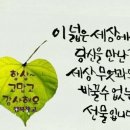 항상~
고맙고
감사해요
이 넓은 세상에
당신을 만난
세상 무엇과도
바꿀 수 없는
선물입니